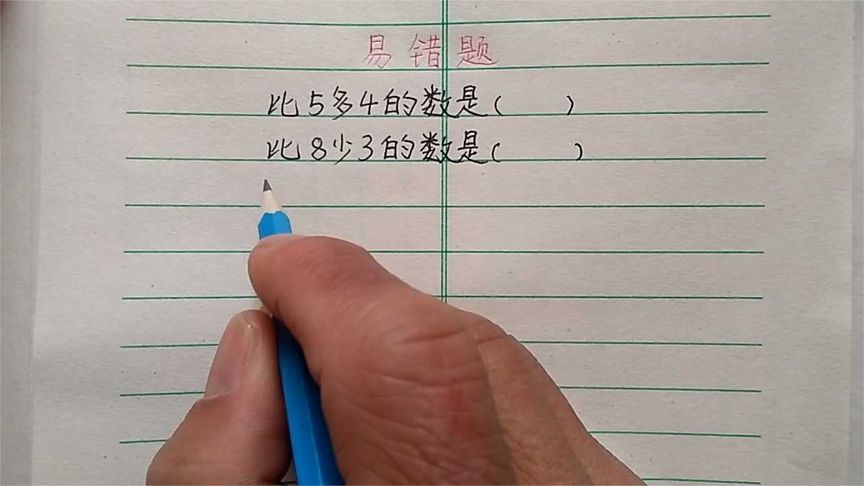 易错题
比5多4的数是(    )
比8少3的数是(    )